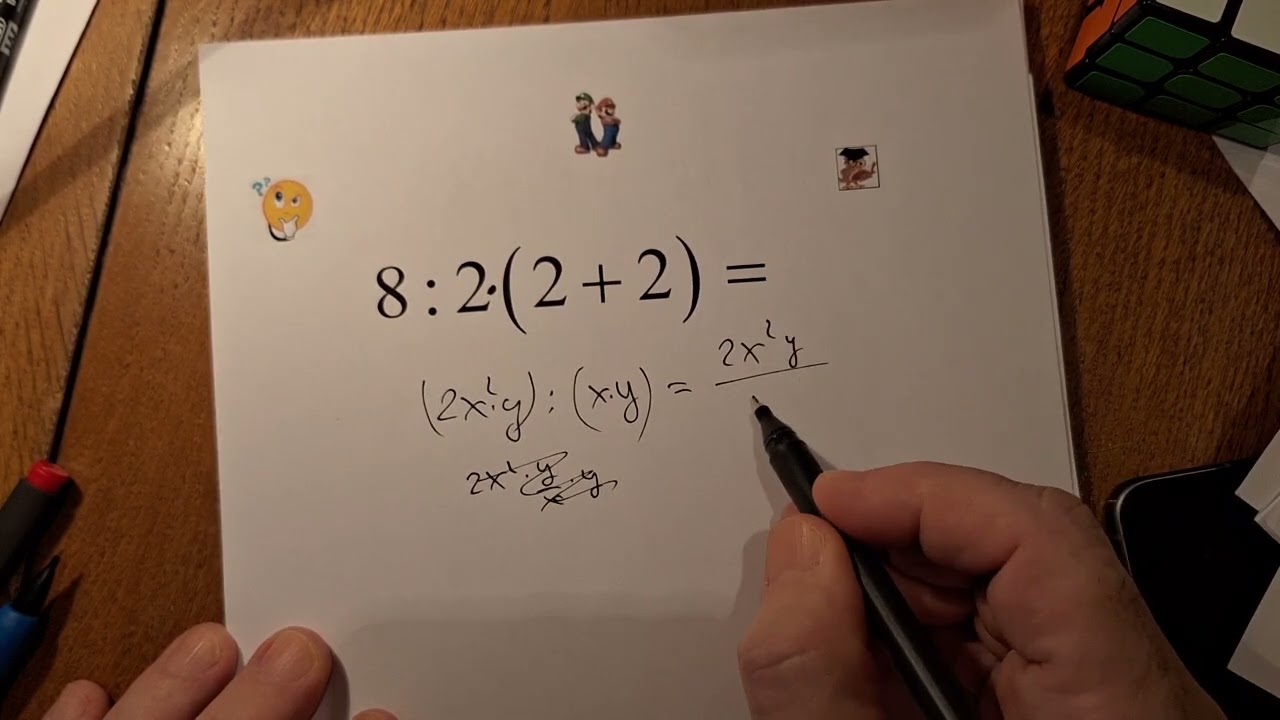 ??
8 : 2·(2 + 2) =
(2x²·y) : (x·y) = 2x²y
2x²·y/x·y